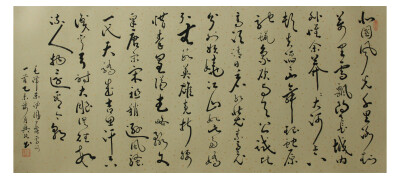 北国风光千里冰封
万里雪飘望长城内
外惟余莽莽大河上下
顿失滔滔山舞银蛇原
驰蜡象欲与天公试比
高须晴日看红装素裹
分外妖娆江山如此多娇
引无数英雄竞折腰
惜秦皇汉武略输文
采唐宗宋祖稍逊风骚
一代天骄成吉思汗只
识弯弓射大雕俱往矣
数风流人物还看今朝
毛泽东沁园春雪
书